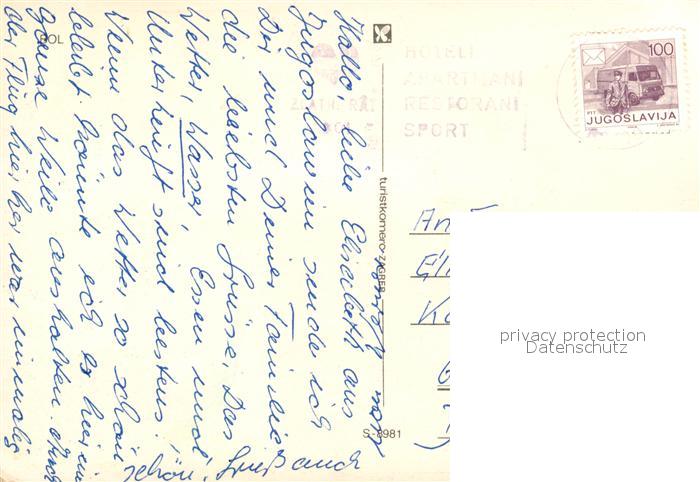 BOL
Hallo liebe Elisabeth aus
Jugoslawien sende ich
Dir und Deiner Familie
die liebsten Grüsse. Das
Wetter, Wasser, Essen und
Unterkunft sind bestens!
Wenn das Wetter so schön
bleibt könnte ich es hier eine
ganze Weile aushalten. Auch
der Flug hierher war
schön! Gruß auch
HOTELI
APARTMANI
RESTORANI
SPORT
ZLATNI RAT
BOL
100
PTT
JUGOSLAVIJA
turistkomerc-ZAGREB
S-8981
An
privacy protection
Datenschutz